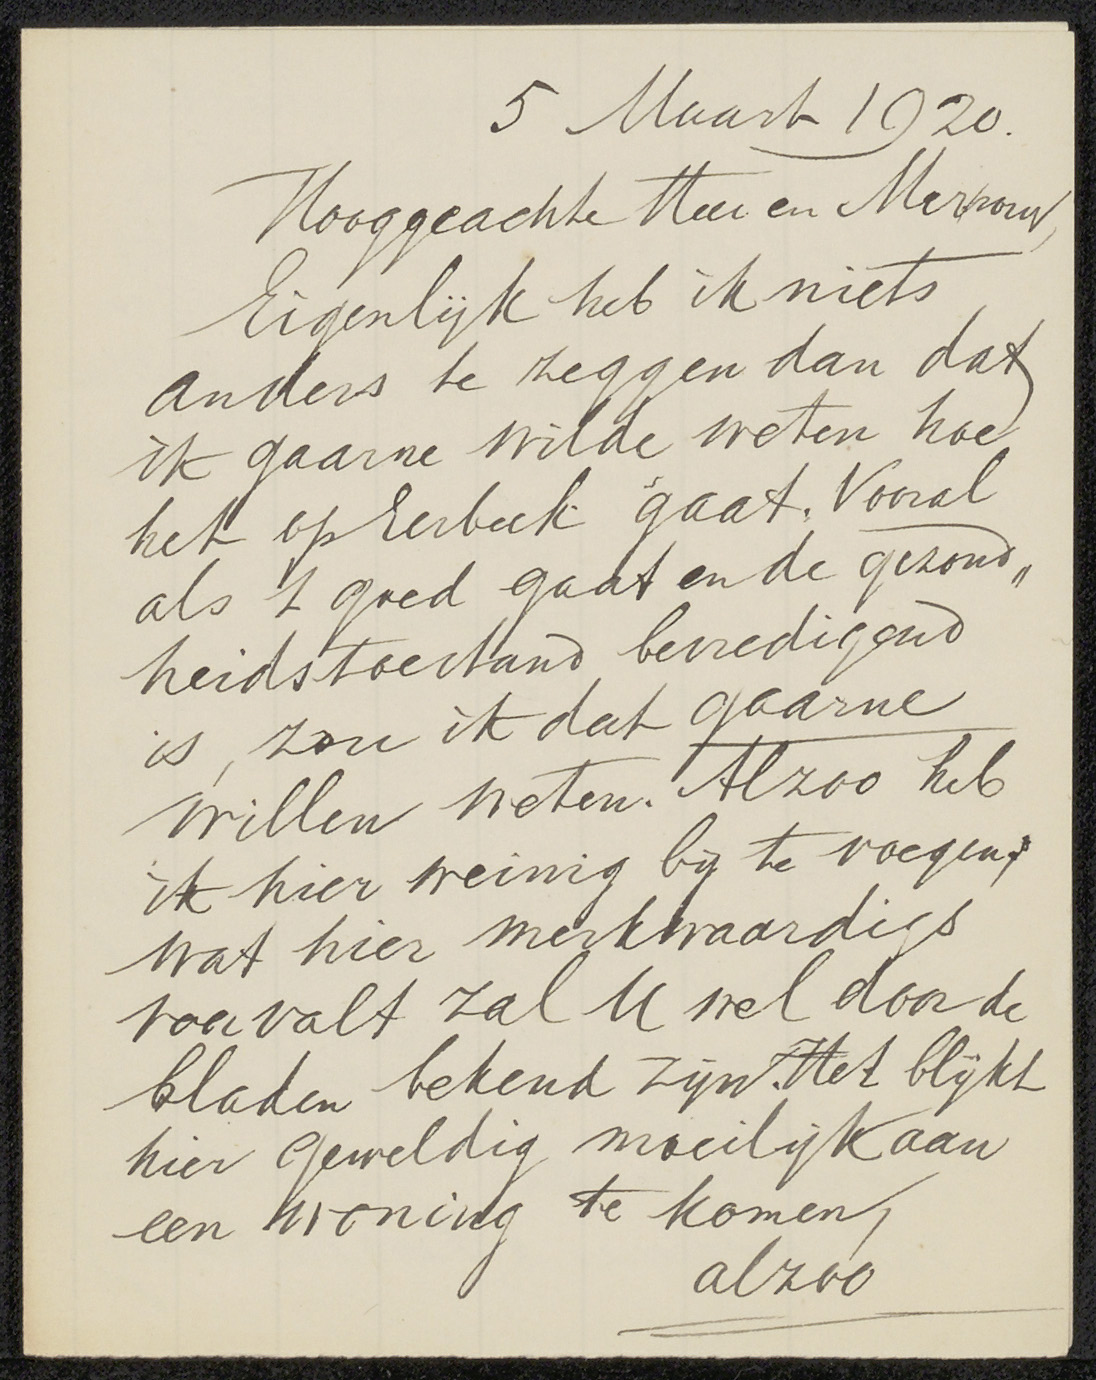 5 Maart 1920.
Hooggeachte Heer en Mevrouw,
Eigenlijk heb ik niets
anders te zeggen dan dat
ik gaarne wilde weten hoe
het op Eerbeek gaat. Vooral
als 't goed gaat en de gezond„
heidstoestand bevredigend
is, zou ik dat gaarne
willen weten. Alzoo heb
ik hier weinig bij te voegen;
wat hier merkwaardigs
voorvalt zal U wel door de
bladen bekend zijn. Het blijkt
hier geweldig moeilijk aan
een woning te komen,
alzoo